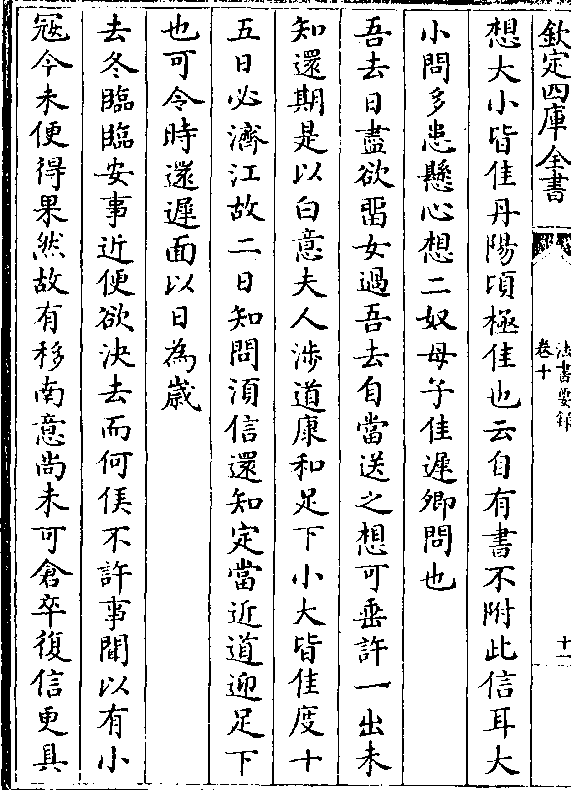 欽定四庫全書
法書要録
卷十
十一
想大小皆佳丹陽頃極佳也云自有書不附此信耳大
小問多患懸心想二奴母子佳遲卿問也
吾去日盡欲留女過吾去自當送之想可垂許一出未
知還期是以白意夫人涉道康和足下小大皆佳度十
五日必濟江故二日知問須信還知定當近道迎足下
也可令時還遲面以日為歲
去冬臨臨安事近便欲決去而何侯不許事聞以有小
寇今未便得果然故有移南意尚未可倉卒復信更具